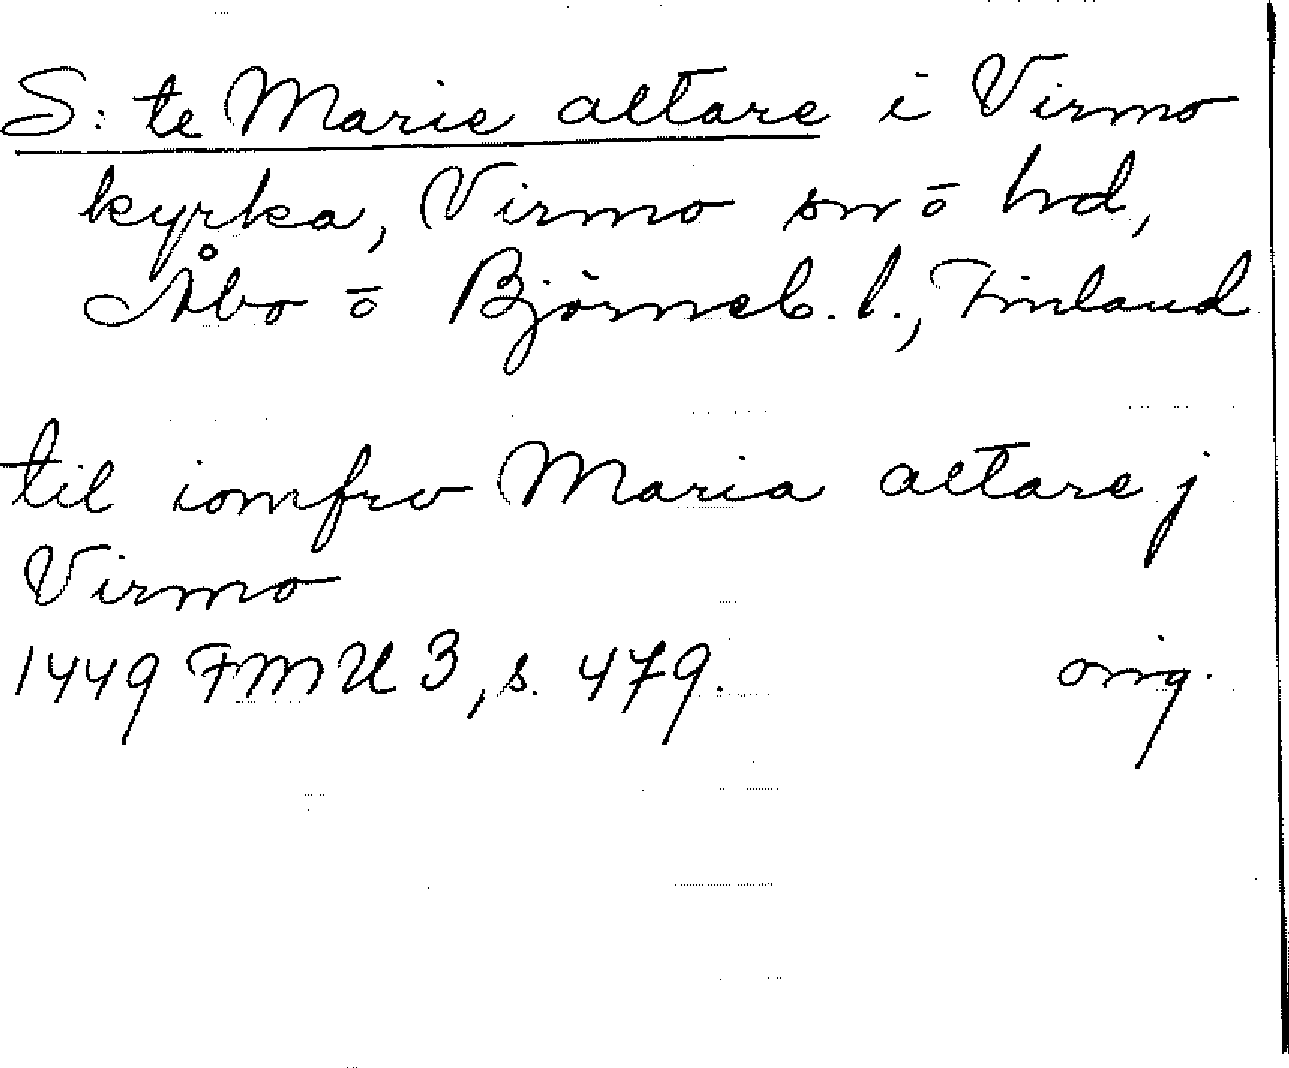 S:te Marie altare i Virmo
kyrka, Virmo sn ō hd,
Åbo ō Björneb. l., Finland
til iomfrv Maria altare j
Virmo
1449 FMU 3, s. 479. orig.